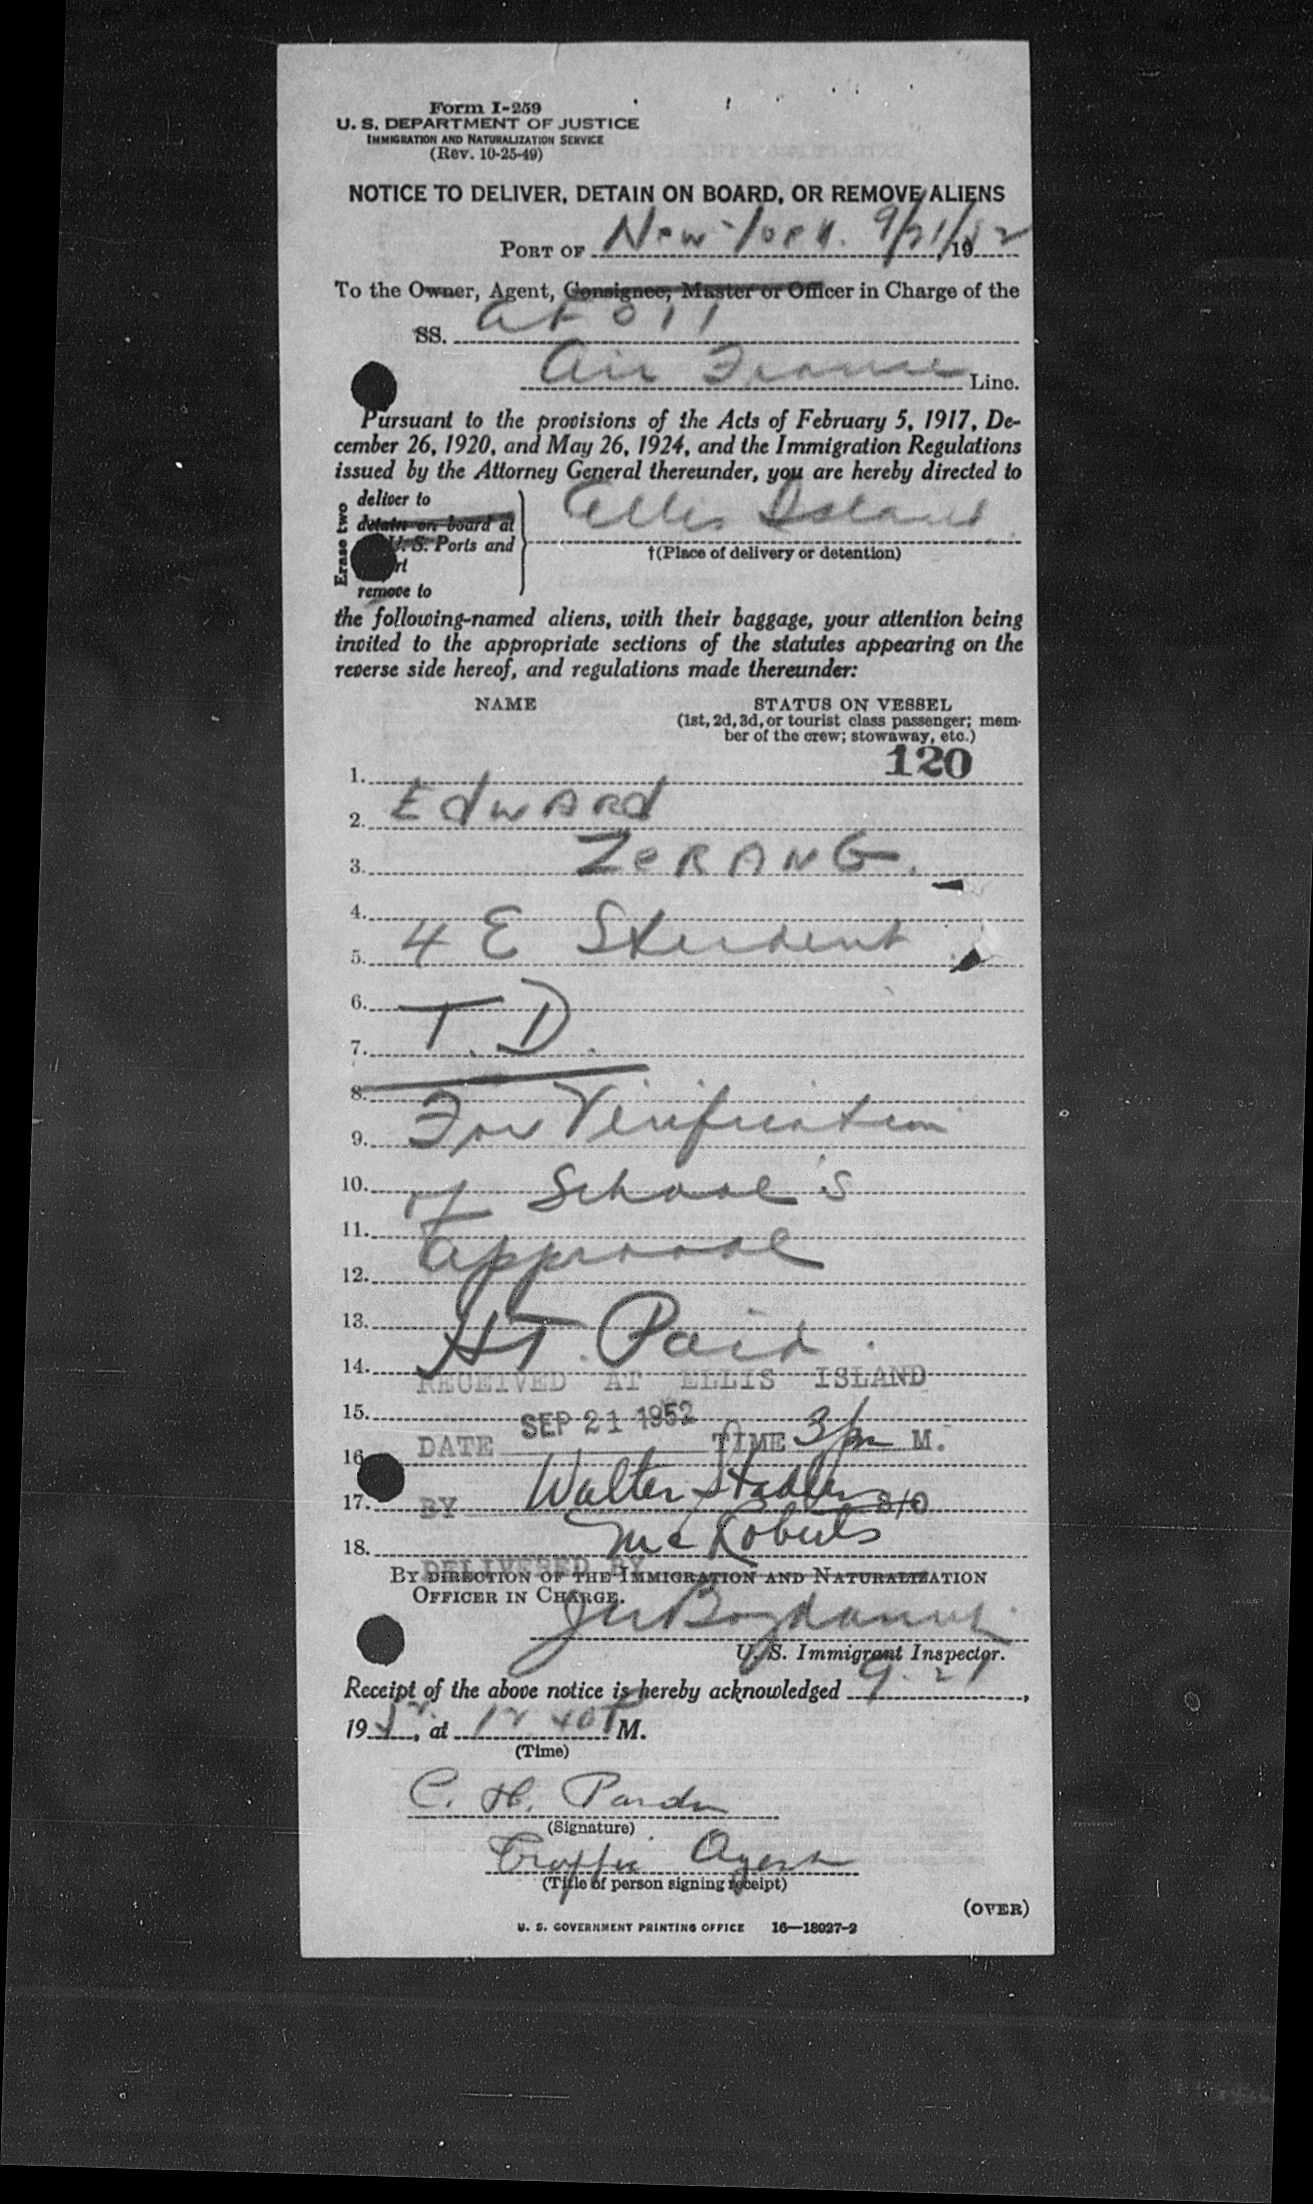 Form I-259
U. S. DEPARTMENT OF JUSTICE
IMMIGRATION AND NATURALIZATION SERVICE
(Rev. 10-25-49)
NOTICE TO DELIVER, DETAIN ON BOARD, OR REMOVE ALIENS
PORT OF New York. 9/21/52, 19
To the Owner, Agent, Consignee, Master or Officer in Charge of the
SS. AF 011
Air France Line.
Pursuant to the provisions of the Acts of February 5, 1917, De-
cember 26, 1920, and May 26, 1924, and the Immigration Regulations
issued by the Attorney General thereunder, you are hereby directed to
Erase two
deliver to
detain on board at
U. S. Ports and
remove to
Ellis Island
†(Place of delivery or detention)
the following-named aliens, with their baggage, your attention being
invited to the appropriate sections of the statutes appearing on the
reverse side hereof, and regulations made thereunder:
NAME STATUS ON VESSEL
(1st, 2d, 3d, or tourist class passenger; mem-
ber of the crew; stowaway, etc.)
120
1.
2. Edward
3. ZeRANG.
4.
5. 4 E Student
6.
7. T. D.
8.
9. For Verification
10. of School's
11.
12. approval
13.
14. HT. Paid.
RECEIVED AT ELLIS ISLAND
15. SEP 21 1952
DATE TIME 3/pm M.
16
17. BY Walter Stadler S/O
18. McRoberts
DELIVERED BY
BY DIRECTION OF THE IMMIGRATION AND NATURALIZATION
OFFICER IN CHARGE.
U. S. Immigrant Inspector.
Receipt of the above notice is hereby acknowledged 9-21,
1952, at 12 40 P M.
(Time)
C. H.
(Signature)
Traffic Agent
(Title of person signing receipt)
(OVER)
U. S. GOVERNMENT PRINTING OFFICE 16—18027-2